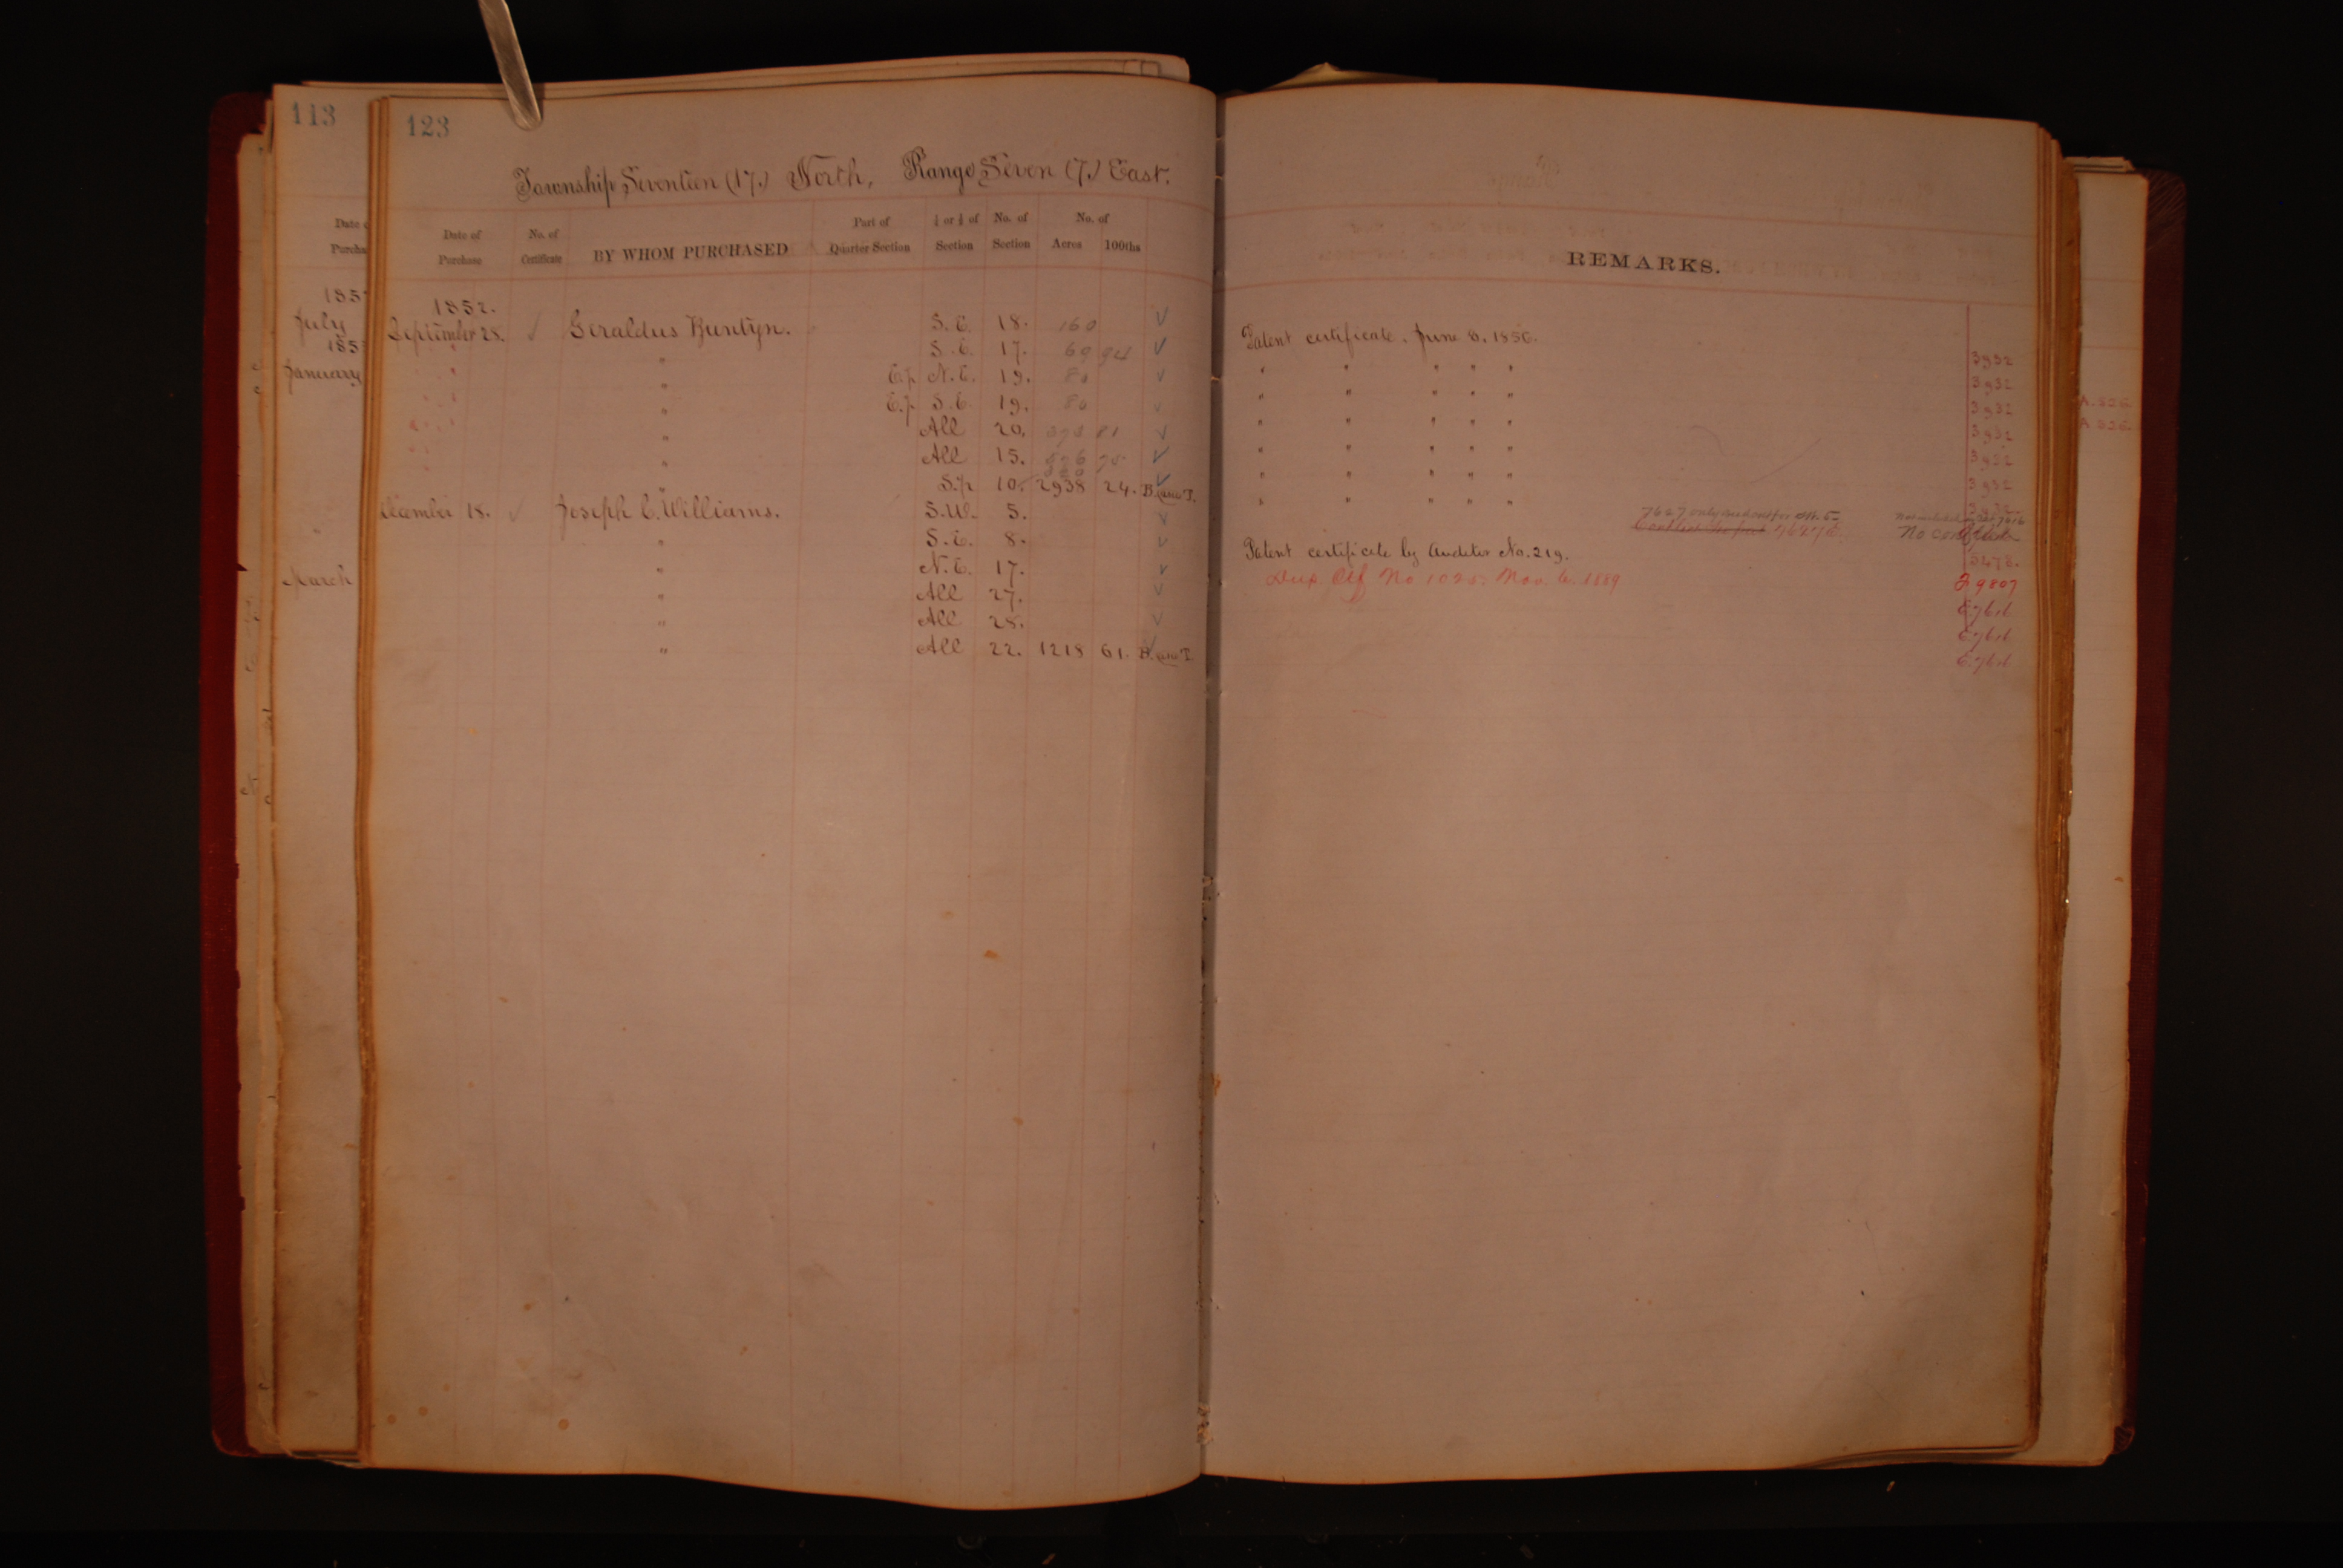 113
123
Township Seventeen (17.) North, Range Seven (7.) East.
Date of Purchase No. of Certificate BY WHOM PURCHASED Part of Quarter Section ¼ or ½ of Section No. of Section No. of Acres 100ths REMARKS.
1852.
September 28. Geraldus Buntyn. S.E. 18. 160 Patent certificate, June 8, 1856. 3932
" S.E. 17. 69 94 " " " " " 3932
" E.p. N.E. 19. 80 " " " " " 3932
" E.p. S.E. 19. 80 " " " " " 3932
" All 20. 81 " " " " " 3932
" All 15. " " " " " 3932
" S.p. 10. 2938 24. B. and T. " " " " "
December 18. Joseph C. Williams. S.W. 5. No
" S.E. 8. Patent certificate by Auditor No. 219.
" N.E. 17. Dup Ctf No 1025. Nov. 6. 1889 29807
" All 27. E.7616
" All 28. E.7616
" All 22. 1218 61. B. and T. E.7616
July
January
March
A.826
A.826